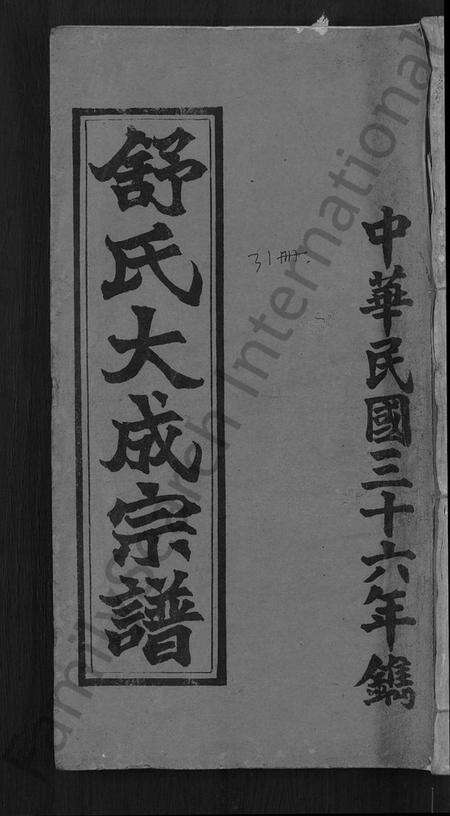 中華民國三十六年鐫
31冊.
舒氏大成宗譜
FamilySearch International